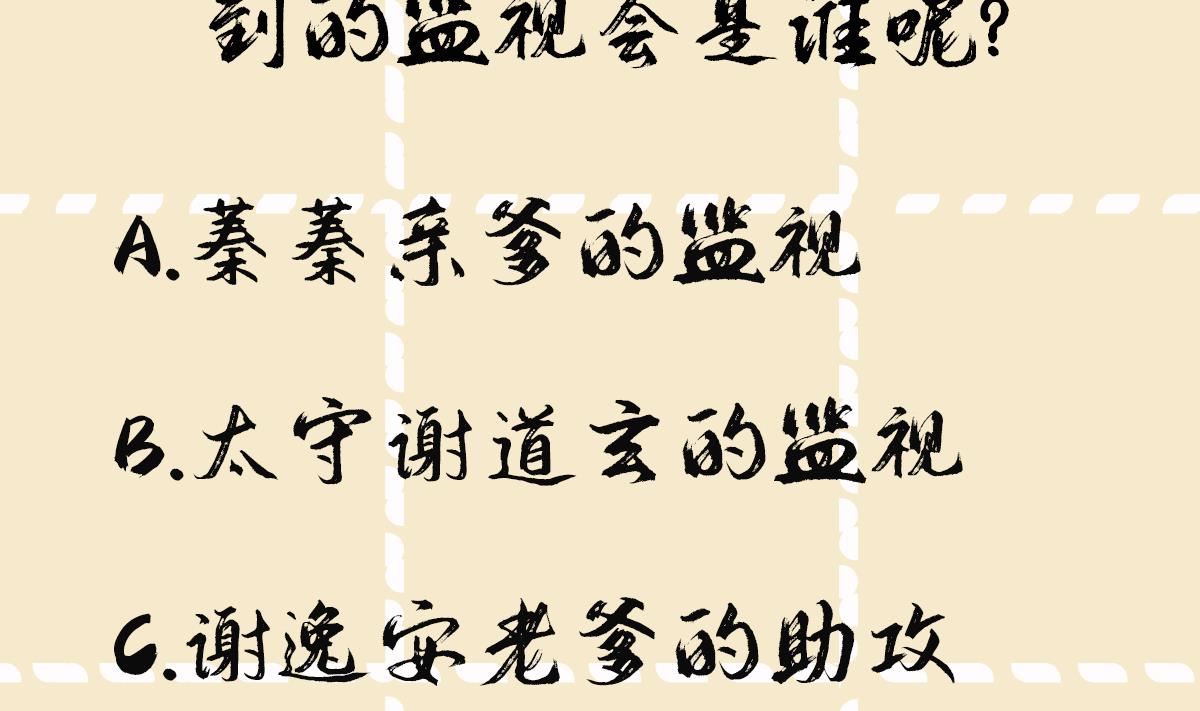 到的监视会是谁呢?
A.蓁蓁亲爹的监视
B.太守谢道玄的监视
C.谢逸安老爹的助攻